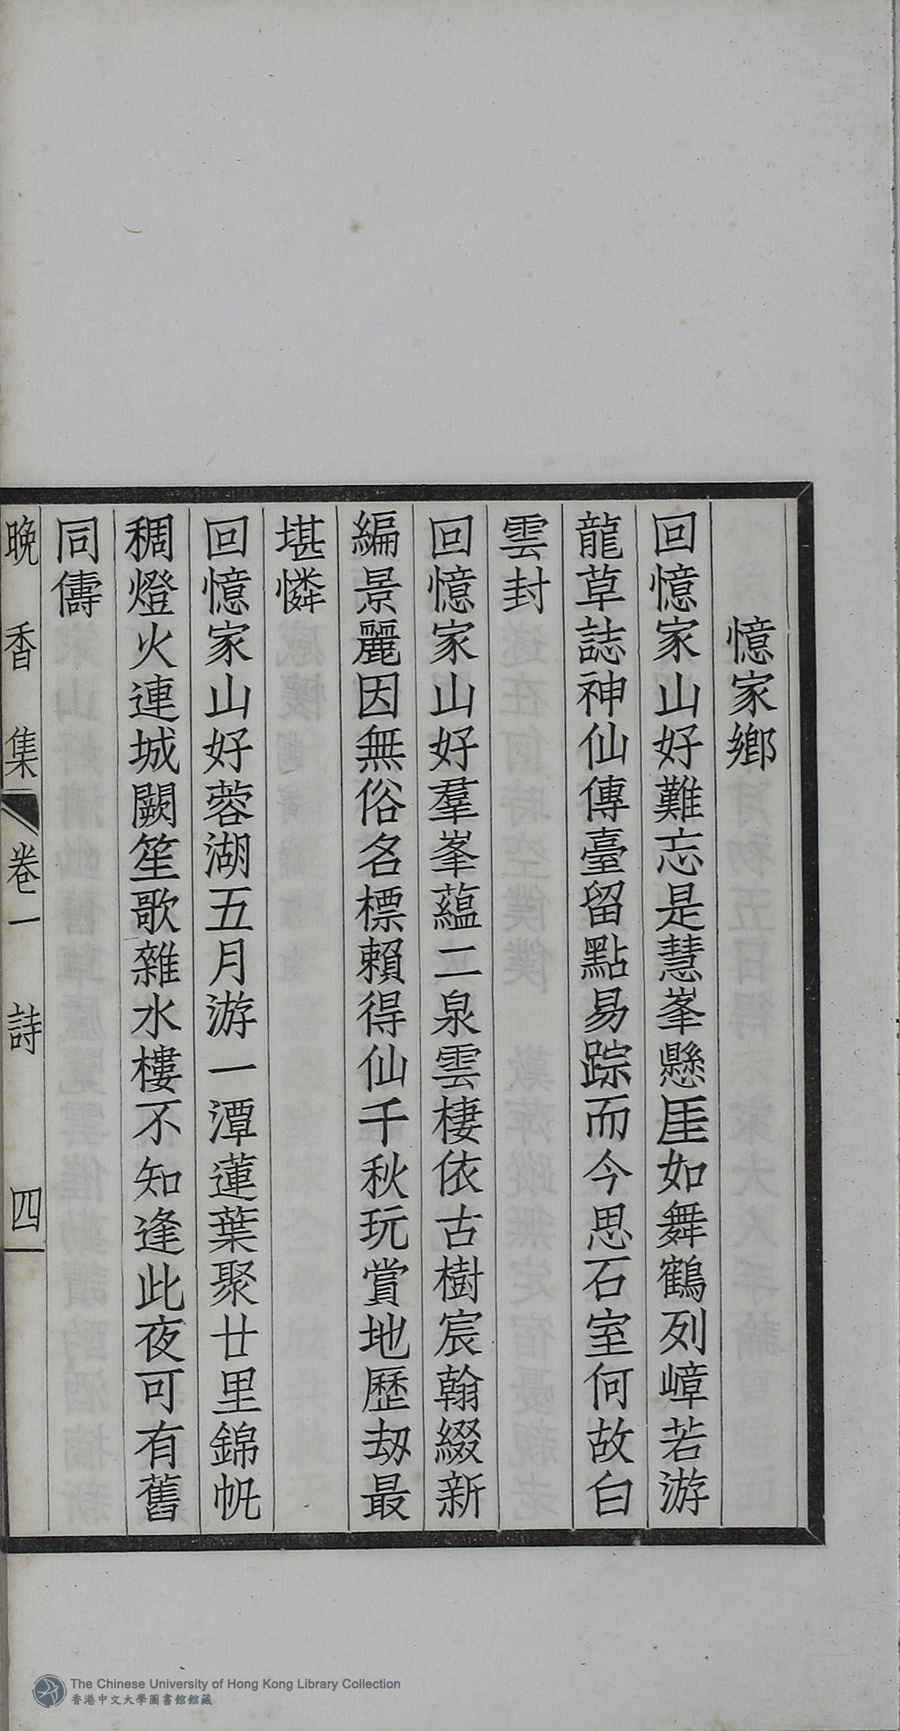 憶家鄉
回憶家山好難忘是慧峯懸厓如舞鶴列嶂若游
龍草誌神仙傳臺留點易踪而今思石室何故白
雲封
回憶家山好羣峯蘊二泉雲棲依古樹宸翰綴新
編景麗因無俗名標賴得仙千秋玩賞地歷劫最
堪憐
回憶家山好蓉湖五月游一潭蓮葉聚廿里錦帆
稠燈火連城闕笙歌雜水樓不知逢此夜可有舊
同儔
晚香集 卷一 詩 四
The Chinese University of Hong Kong Library Collection
香港中文大學圖書館館藏